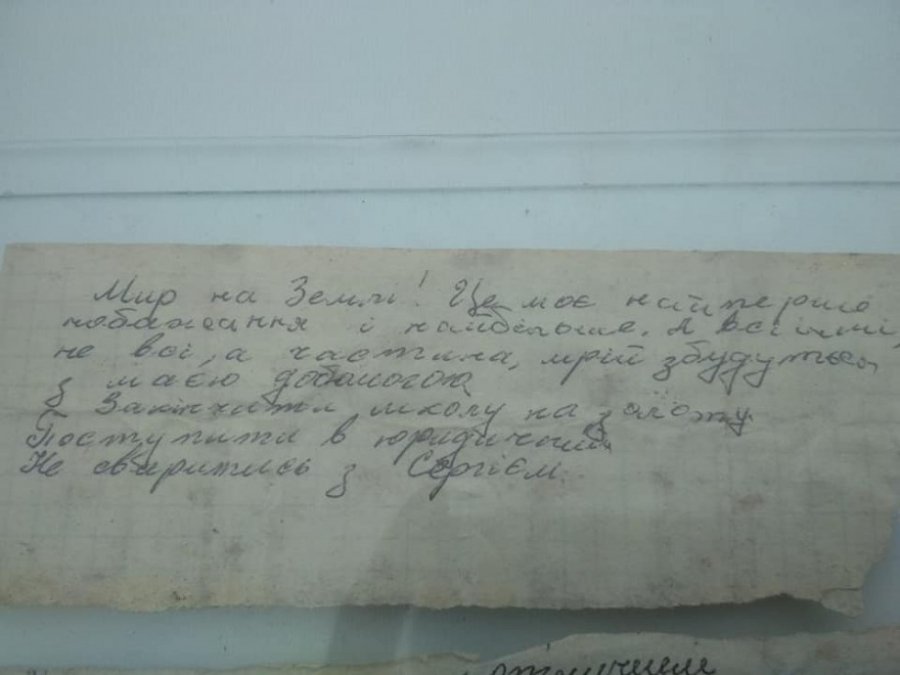 Мир на Землі! Це моє найперше
побажання і найбільше. А всі інші,
не всі, а частина, мрій збудуться
з маєю добомогою
Закінчити школу на золоту
Поступити в юридичний
Не сваритись з Сергієм.